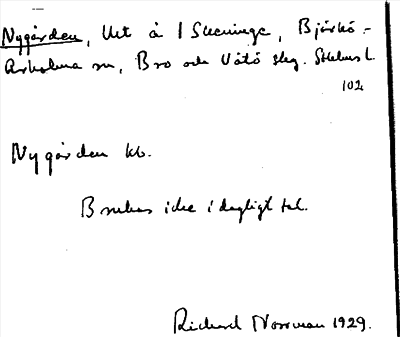 Nygården, Utt å 1 Skeninge, Björkö-
Arholma sn, Bro och Vätö skg. Sthlms l.
102
Nygården kb.
Brukas icke i dagligt tal.
Richard Norrman 1929.